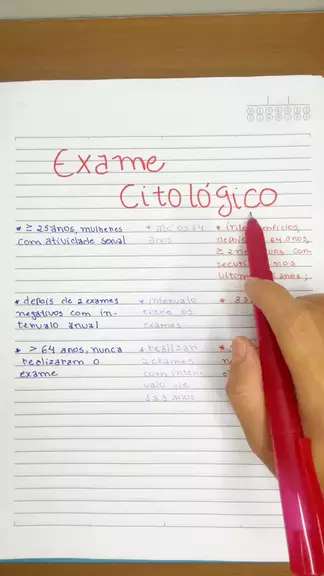 Exame
Citológico
* ≥ 25 anos, mulheres
com atividade sexual
* até os 64
anos
depois
64 anos,
≥ 2
cons
* depois de 2 exames
negativos com in-
tervalo anual
* intervalo
entre os
exames
* > 64 anos, nunca
realizaram o
exame
* realizar
2 exames
com inter-
valo de
1 a 3 anos